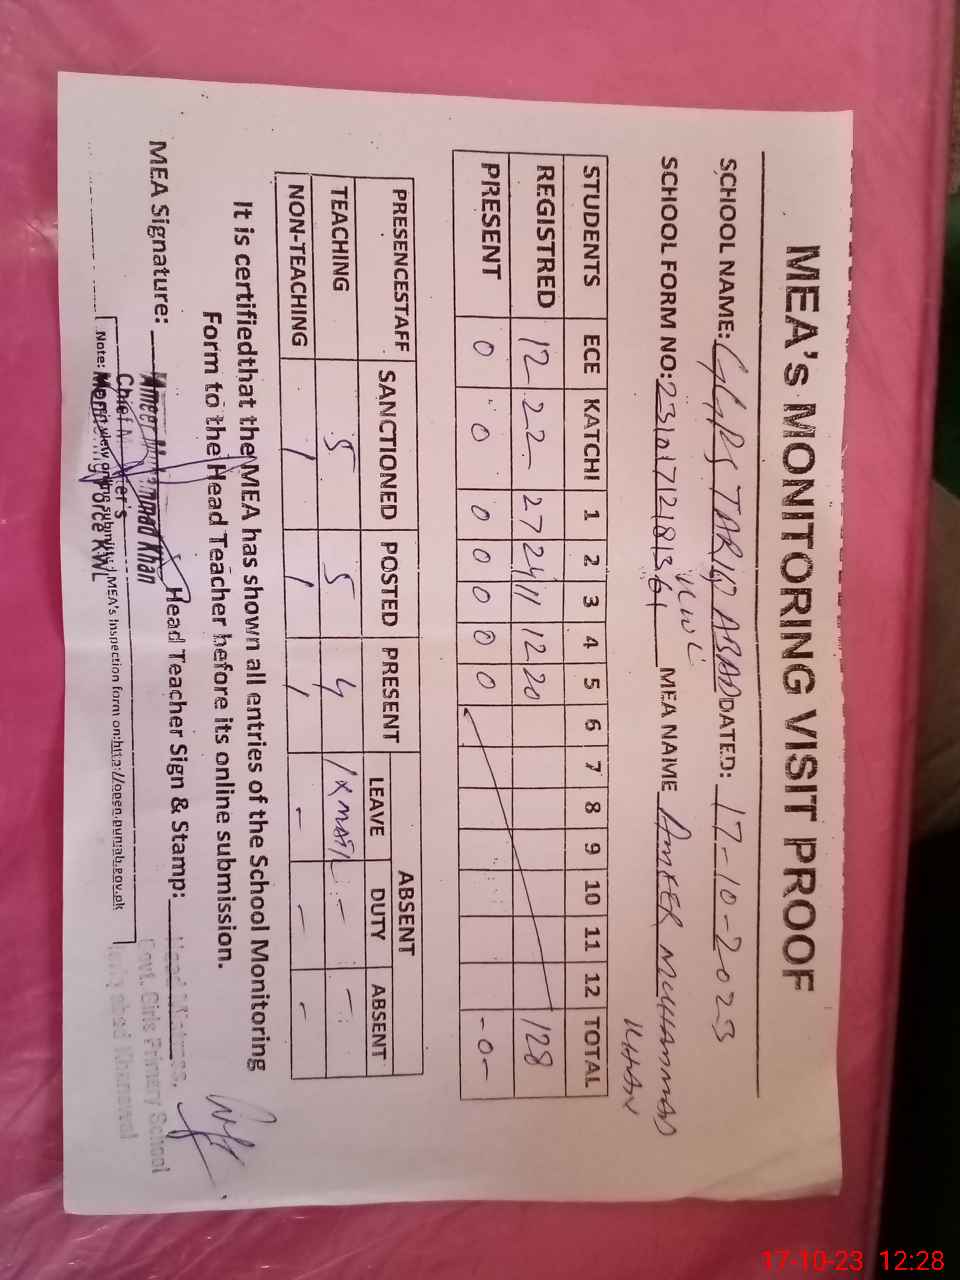 MEA's MONITORING VISIT PROOF
SCHOOL NAME: GGPS TARIQ ABAD DATED: 17-10-2023
KWL
SCHOOL FORM NO: MEA NAME AMEER MUHAMMAD
KHAN
STUDENTS ECE KATCHI 1 2 3 4 5 6 7 8 9 10 11 12 TOTAL
REGISTRED 12 22 27 24 11 12 20 128
PRESENT 0 0 0 0 0 0 0 -0-
PRESENCESTAFF SANCTIONED POSTED PRESENT ABSENT
LEAVE DUTY ABSENT
TEACHING 5 5 4 - -
NON-TEACHING 1 1 1 - - -
It is certifiedthat the MEA has shown all entries of the School Monitoring
Form to the Head Teacher before its online submission.
MEA Signature: Head Teacher Sign & Stamp:
Ameer Muhammad Khan
Chief Monitoring Force KWL
Note: MEA's Inspection form on:http://open.punjab.gov.pk
Head Mistress,
Govt. Girls Primary School
Tariq abad Khanewal
17-10-23 12:28